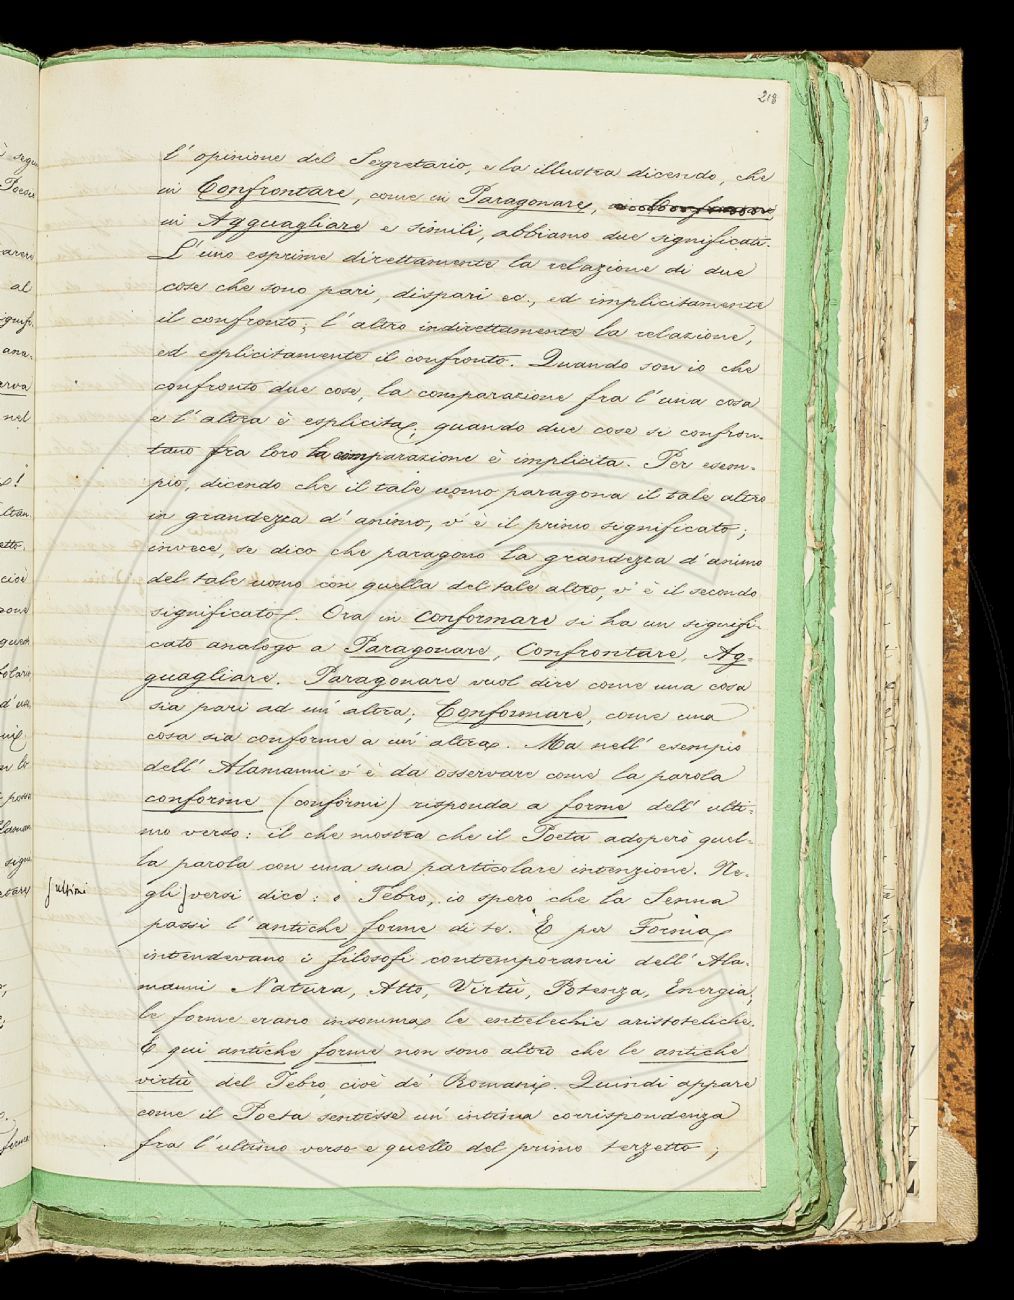 218
l' opinione del Segretario, e la illustra dicendo, che
in Confrontare, come in Paragonare,
in Agguagliare e simili, abbiamo due significati.
L' uno esprime direttamente la relazione di due
cose che sono pari, dispari ec., ed implicitamente
il confronto; l' altro indirettamente la relazione,
ed esplicitamente il confronto. Quando son io che
confronto due cose, la comparazione fra l' una cosa
e l' altra è esplicita; quando due cose si confron-
tano fra loro la comparazione è implicita. Per esem-
pio, dicendo che il tale uomo paragona il tale altro
in grandezza d' animo, v' è il primo significato;
invece, se dico che paragono la grandezza d' animo
del tale uomo con quella del tale altro, v' è il secondo
significato. Ora in conformare si ha un signifi-
cato analogo a Paragonare, Confrontare, Ag-
guagliare. Paragonare vuol dire come una cosa
sia pari ad un' altra; Conformare, come una
cosa sia conforme a un' altra. Ma nell' esempio
dell' Alamanni v' è da osservare come la parola
conforme (conformi) risponda a forme dell' ulti-
mo verso: il che mostra che il Poeta adoperò quel-
la parola con una sua particolare intenzione. Ne-
gli versi dice: o Tebro, io spero che la Senna
ultimi
passi l' antiche forme di te. E per Forma
intendevano i filosofi contemporanei dell' Ala-
manni Natura, Atto, Virtù, Potenza, Energia;
le forme erano insomma le entelechie aristoteliche.
E qui antiche forme non sono altro che le antiche
virtù del Tebro, cioè de' Romani. Quindi appare
come il Poeta sentisse un' intima corrispondenza
fra l' ultimo verso e quello del primo terzetto;